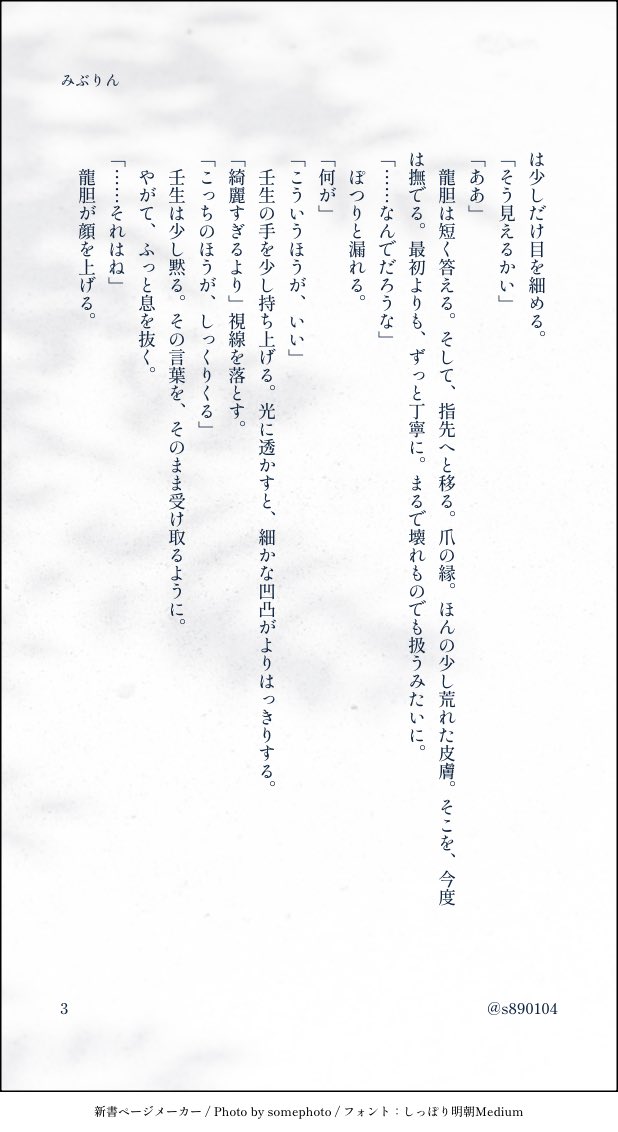 みぶりん
は少しだけ目を細める。
「そう見えるかい」
「ああ」
龍胆は短く答える。そして、指先へと移る。爪の縁。ほんの少し荒れた皮膚。そこを、今度
は撫でる。最初よりも、ずっと丁寧に。まるで壊れものでも扱うみたいに。
「……なんでだろうな」
ぽつりと漏れる。
「何が」
「こういうほうが、いい」
壬生の手を少し持ち上げる。光に透かすと、細かな凹凸がよりはっきりする。
「綺麗すぎるより」視線を落とす。
「こっちのほうが、しっくりくる」
壬生は少し黙る。その言葉を、そのまま受け取るように。
やがて、ふっと息を抜く。
「……それはね」
龍胆が顔を上げる。
3
@s890104
新書ページメーカー / Photo by somephoto / フォント：しっぽり明朝Medium